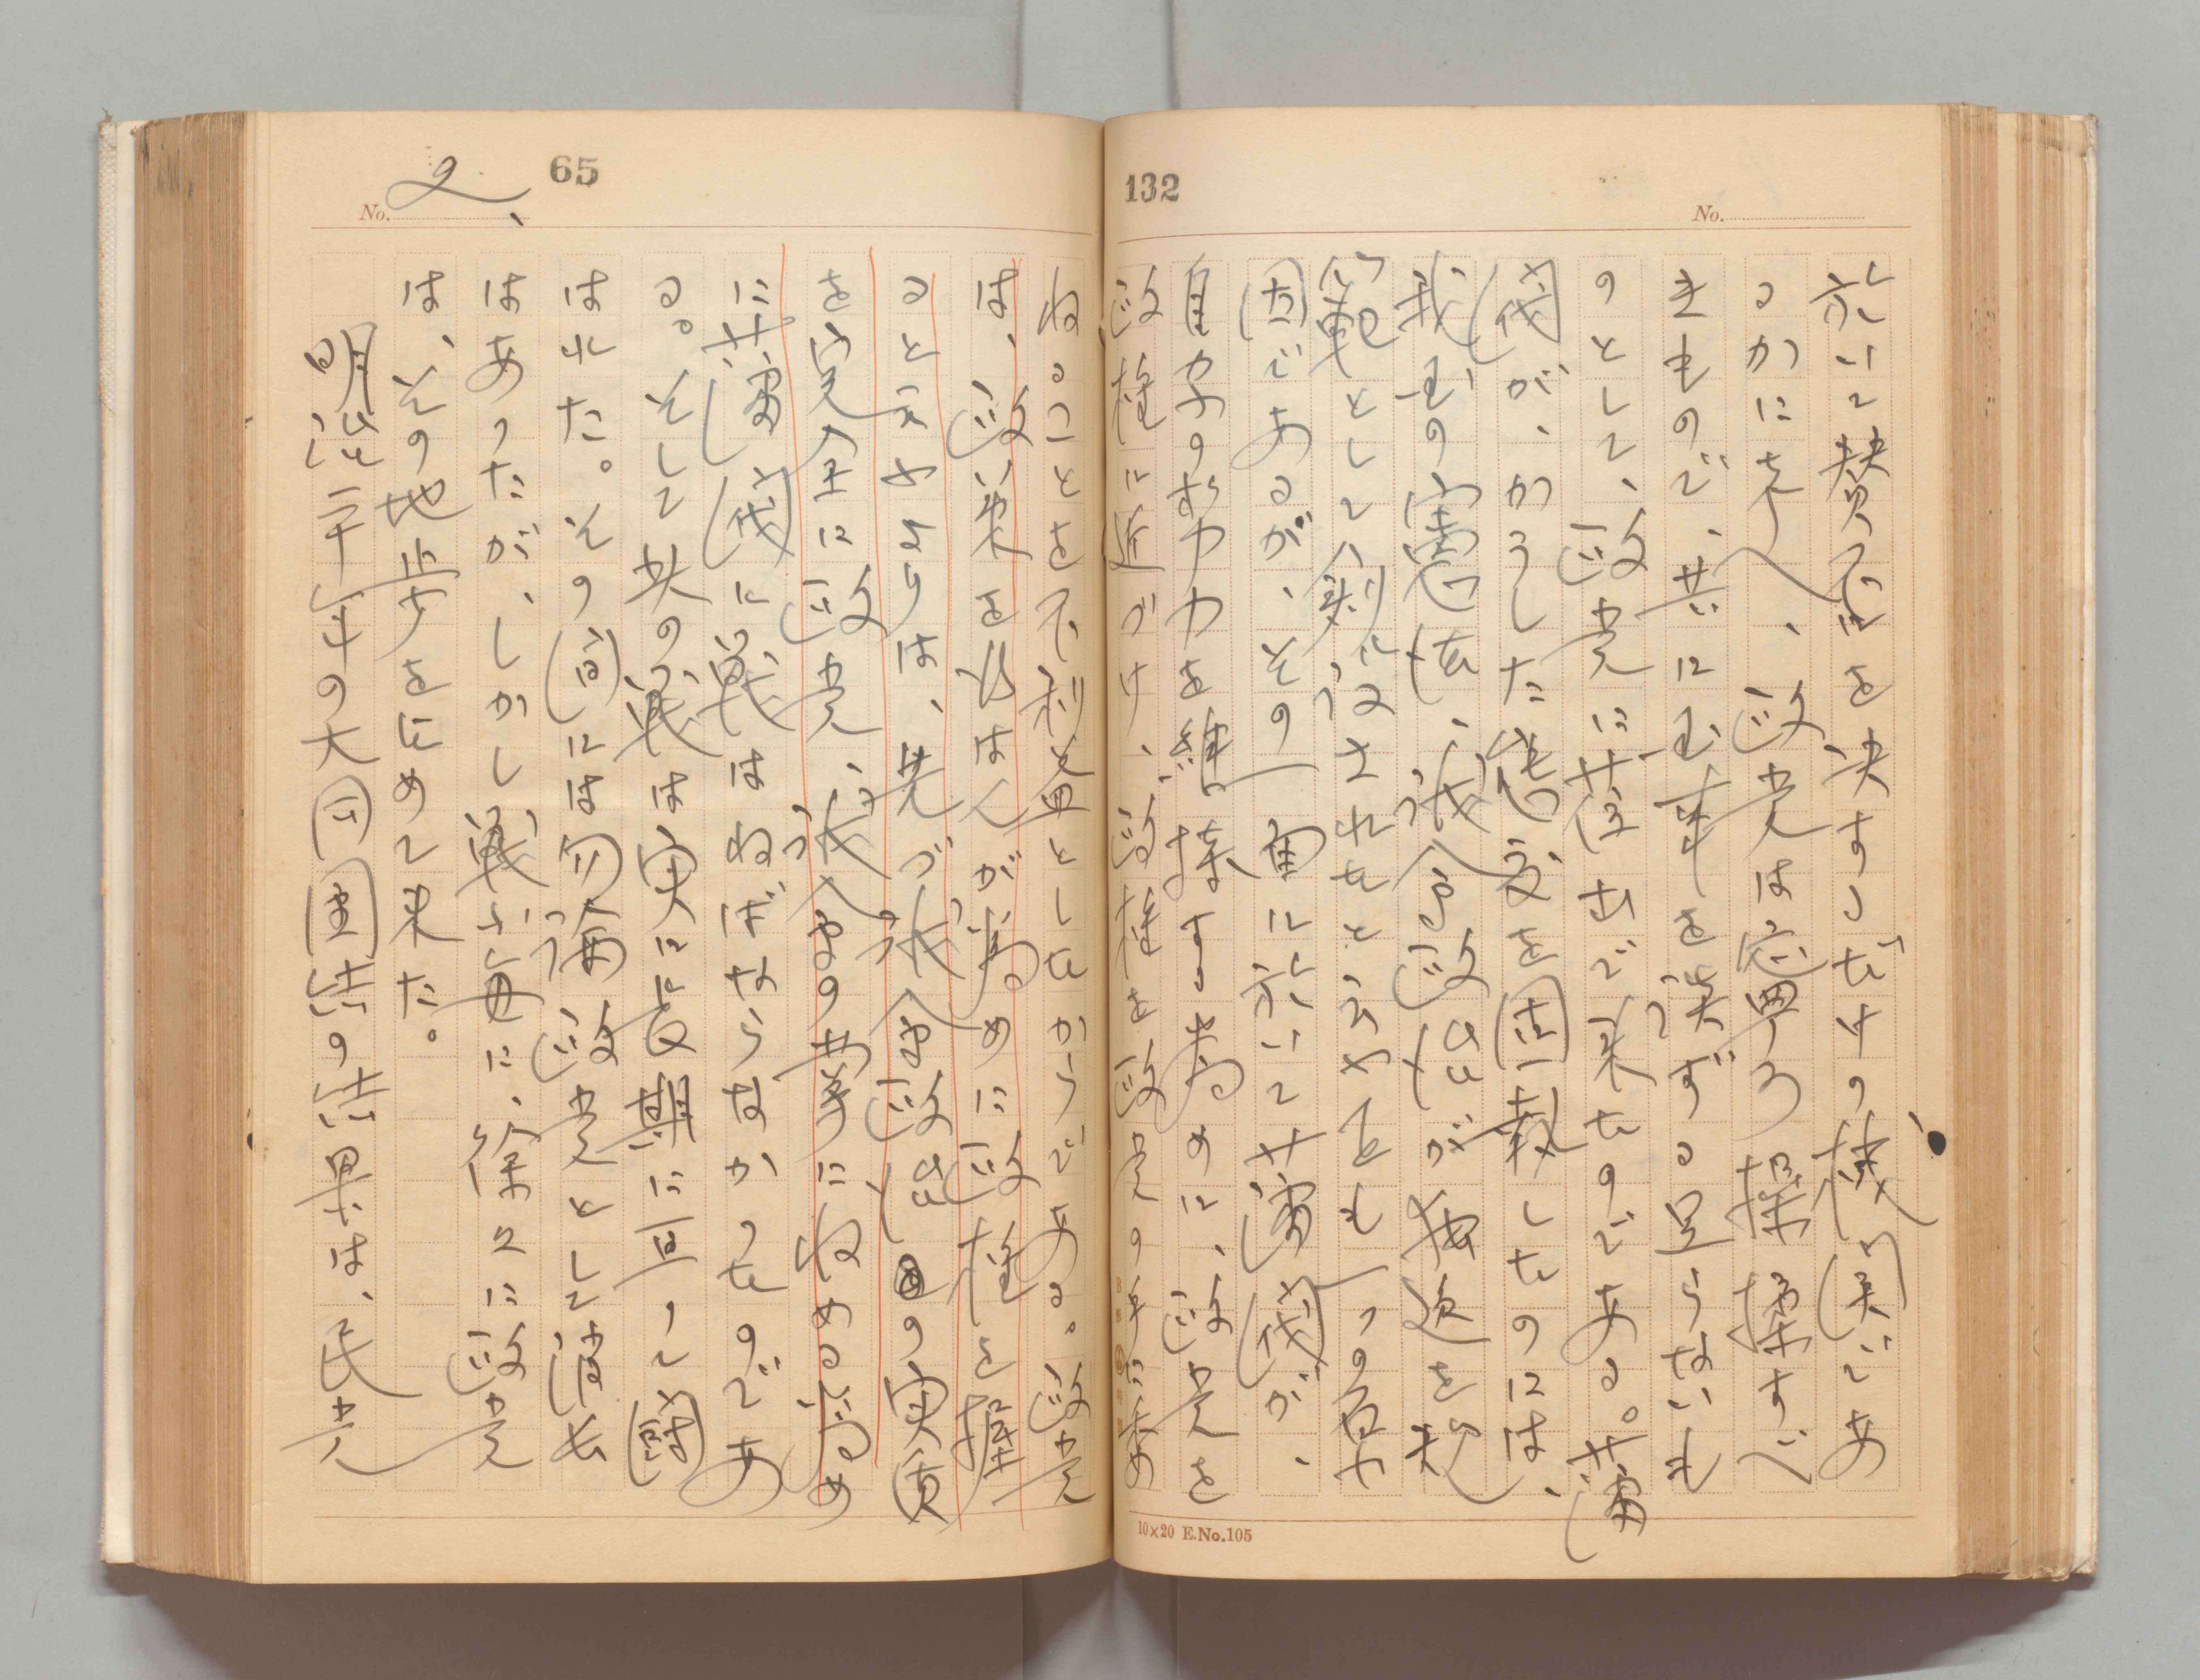 132
No.
於いて賛否を決するだけの機関であ
るかに考へ、政党は寧ろ撲滅すべ
きもので、共に国事を談ずる足らないも
のとして、政党に蔑出で来たのである。藩
閥が、かうした態度を固執したのには、
我国の憲法、議会政治が独逸を規
範として創設されたと云ふことも一つの原
因であるが、その一面に於いて藩閥が、
自分の勢力を維持する為めに、政党を
政権に近づけ、政権を政党の手に委め
10×20 E.No.105
65
No. 2、
ねることを不利益としたからである。政党
は、政策を行はんが為めに政権を握
ると云ふよりは、先づ議会政治の実質
を完全に政党、議会の手にをさめる為め
に藩閥と戦はねばならなかつたのであ
る。そして其の戦は実に長期に亘つて闘
はれた。その間には勿論政党として消長
はあつたが、しかし戦ふ毎に、徐々に政党
は、その地歩を占めて来た。
明治二十年の大同団結の結果は、民党